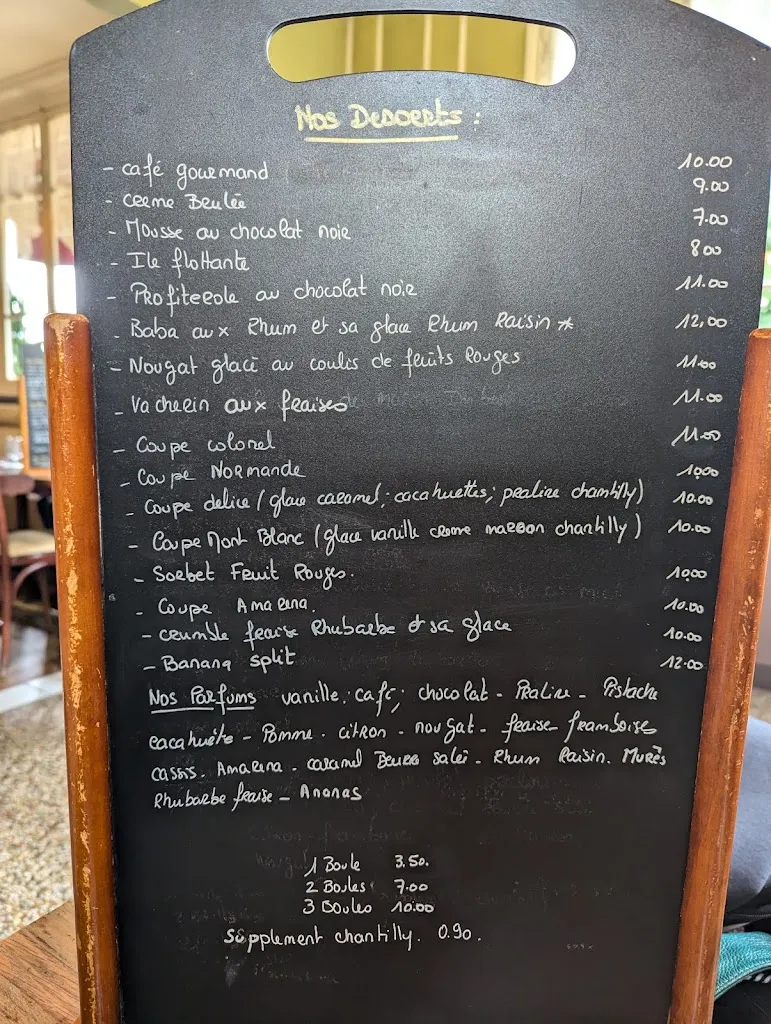 Nos Desserts :
- café gourmand 10.00
- creme Brulée 9.00
- Mousse au chocolat noir 7.00
- Ile flottante 8 00
- Profiterole au chocolat noir 11.00
- Baba aux Rhum et sa glace Rhum Raisin * 12,00
- Nougat glacé au coulis de fruits Rouges 11.00
- Vacherin aux fraises 11.00
- Coupe colonel 11.00
- Coupe Normande 10,00
- Coupe delice (glace caramel, cacahuettes, praline chantilly) 10.00
- Coupe Mont Blanc (glace vanille creme marron chantilly) 10.00
- Sorbet Fruit Rouges. 10,00
- Coupe Amarena. 10.00
- crumble fraise Rhubarbe et sa glace 10.00
- Banana split 12.00
Nos Parfums vanille, café, chocolat - Praline - Pistache
cacahuète - Pomme - citron - nougat - fraise framboise
cassis - Amarena - caramel Beurre salé - Rhum Raisin. Mures
Rhubarbe fraise - Ananas
1 Boule 3.50.
2 Boules 7.00
3 Boules 10.00
Supplement chantilly. 0.90.